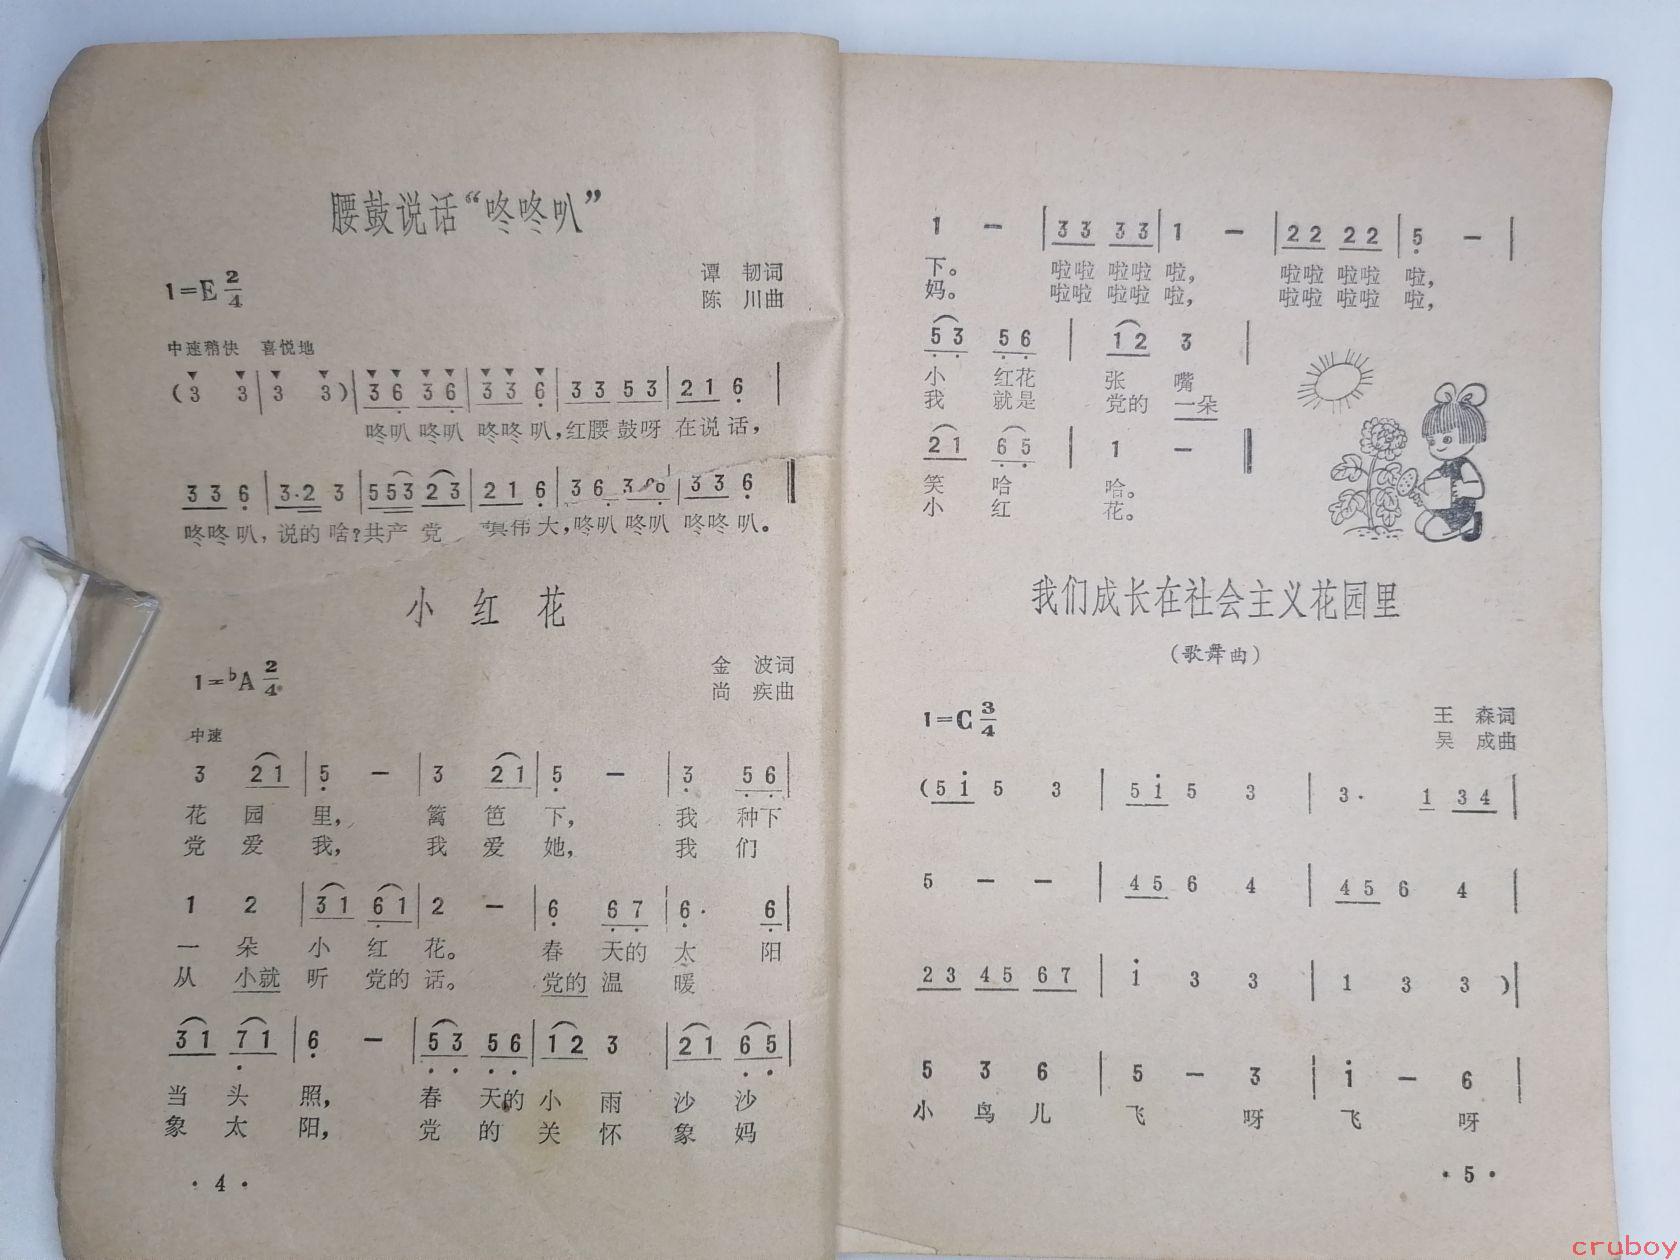 腰鼓说话“咚咚叭”
1=E 2/4
谭 韧词
陈 川曲
中速稍快 喜悦地
(3 3 | 3 3)| 3 6 3 6 | 3 3 6 | 3 3 5 3 | 2 1 6 |
咚叭 咚叭 咚咚 叭,红腰 鼓呀 在说 话,
3 3 6 | 3·2 3 | 5 5 3 2 3 | 2 1 6 | 3 6 3 6 | 3 3 6 ‖
咚咚 叭, 说的 啥?共产 党 真伟 大,咚叭 咚叭 咚咚 叭。
小 红 花
1=♭A 2/4
金 波词
尚 疾曲
中速
3 2 1 | 5 — | 3 2 1 | 5 — | 3 5 6 |
花 园 里, 篱 笆 下, 我 种下
党 爱 我, 我 爱 她, 我 们
1 2 | 3 1 6 1 | 2 — | 6 6 7 | 6· 6 |
一 朵 小 红 花。 春 天的 太 阳
从 小就 听 党的 话。 党的 温 暖
3 1 7 1 | 6 — | 5 3 5 6 | 1 2 3 | 2 1 6 5 |
当 头 照, 春 天的 小 雨 沙 沙
象 太 阳, 党 的 关 怀 象 妈
· 4 ·
1 — | 3 3 3 3 | 1 — | 2 2 2 2 | 5 — |
下。 啦啦 啦啦 啦, 啦啦 啦啦 啦,
妈。 啦啦 啦啦 啦, 啦啦 啦啦 啦,
5 3 5 6 | 1 2 3 |
小 红花 张 嘴
我 就是 党的 一朵
2 1 6 5 | 1 — ‖
笑 哈 哈。
小 红 花。
我们成长在社会主义花园里
(歌舞曲)
1=C 3/4
王 森词
吴 成曲
(5 i 5 3 | 5 i 5 3 | 3· 1 3 4 |
5 — — | 4 5 6 4 | 4 5 6 4 |
2 3 4 5 6 7 | i 3 3 | 1 3 3 )|
5 3 6 | 5 — 3 | i — 6 |
小 鸟 儿 飞 呀 飞 呀
· 5 ·
cruboy